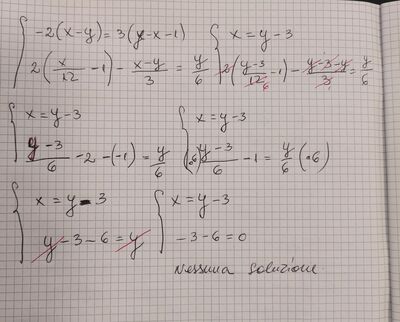 { -2(x-y)=3(y-x-1)
2(x/12 -1) - (x-y)/3 = y/6
{ x = y-3
2((y-3)/12 6 -1) - (y-3-y)/3 = y/6
{ x = y-3
(y-3)/6 -2 -(-1) = y/6
{ x = y-3
(•6) (y-3)/6 -1 = y/6 (•6)
{ x = y-3
y-3-6 = y
{ x = y-3
-3-6=0
Nessuna soluzione